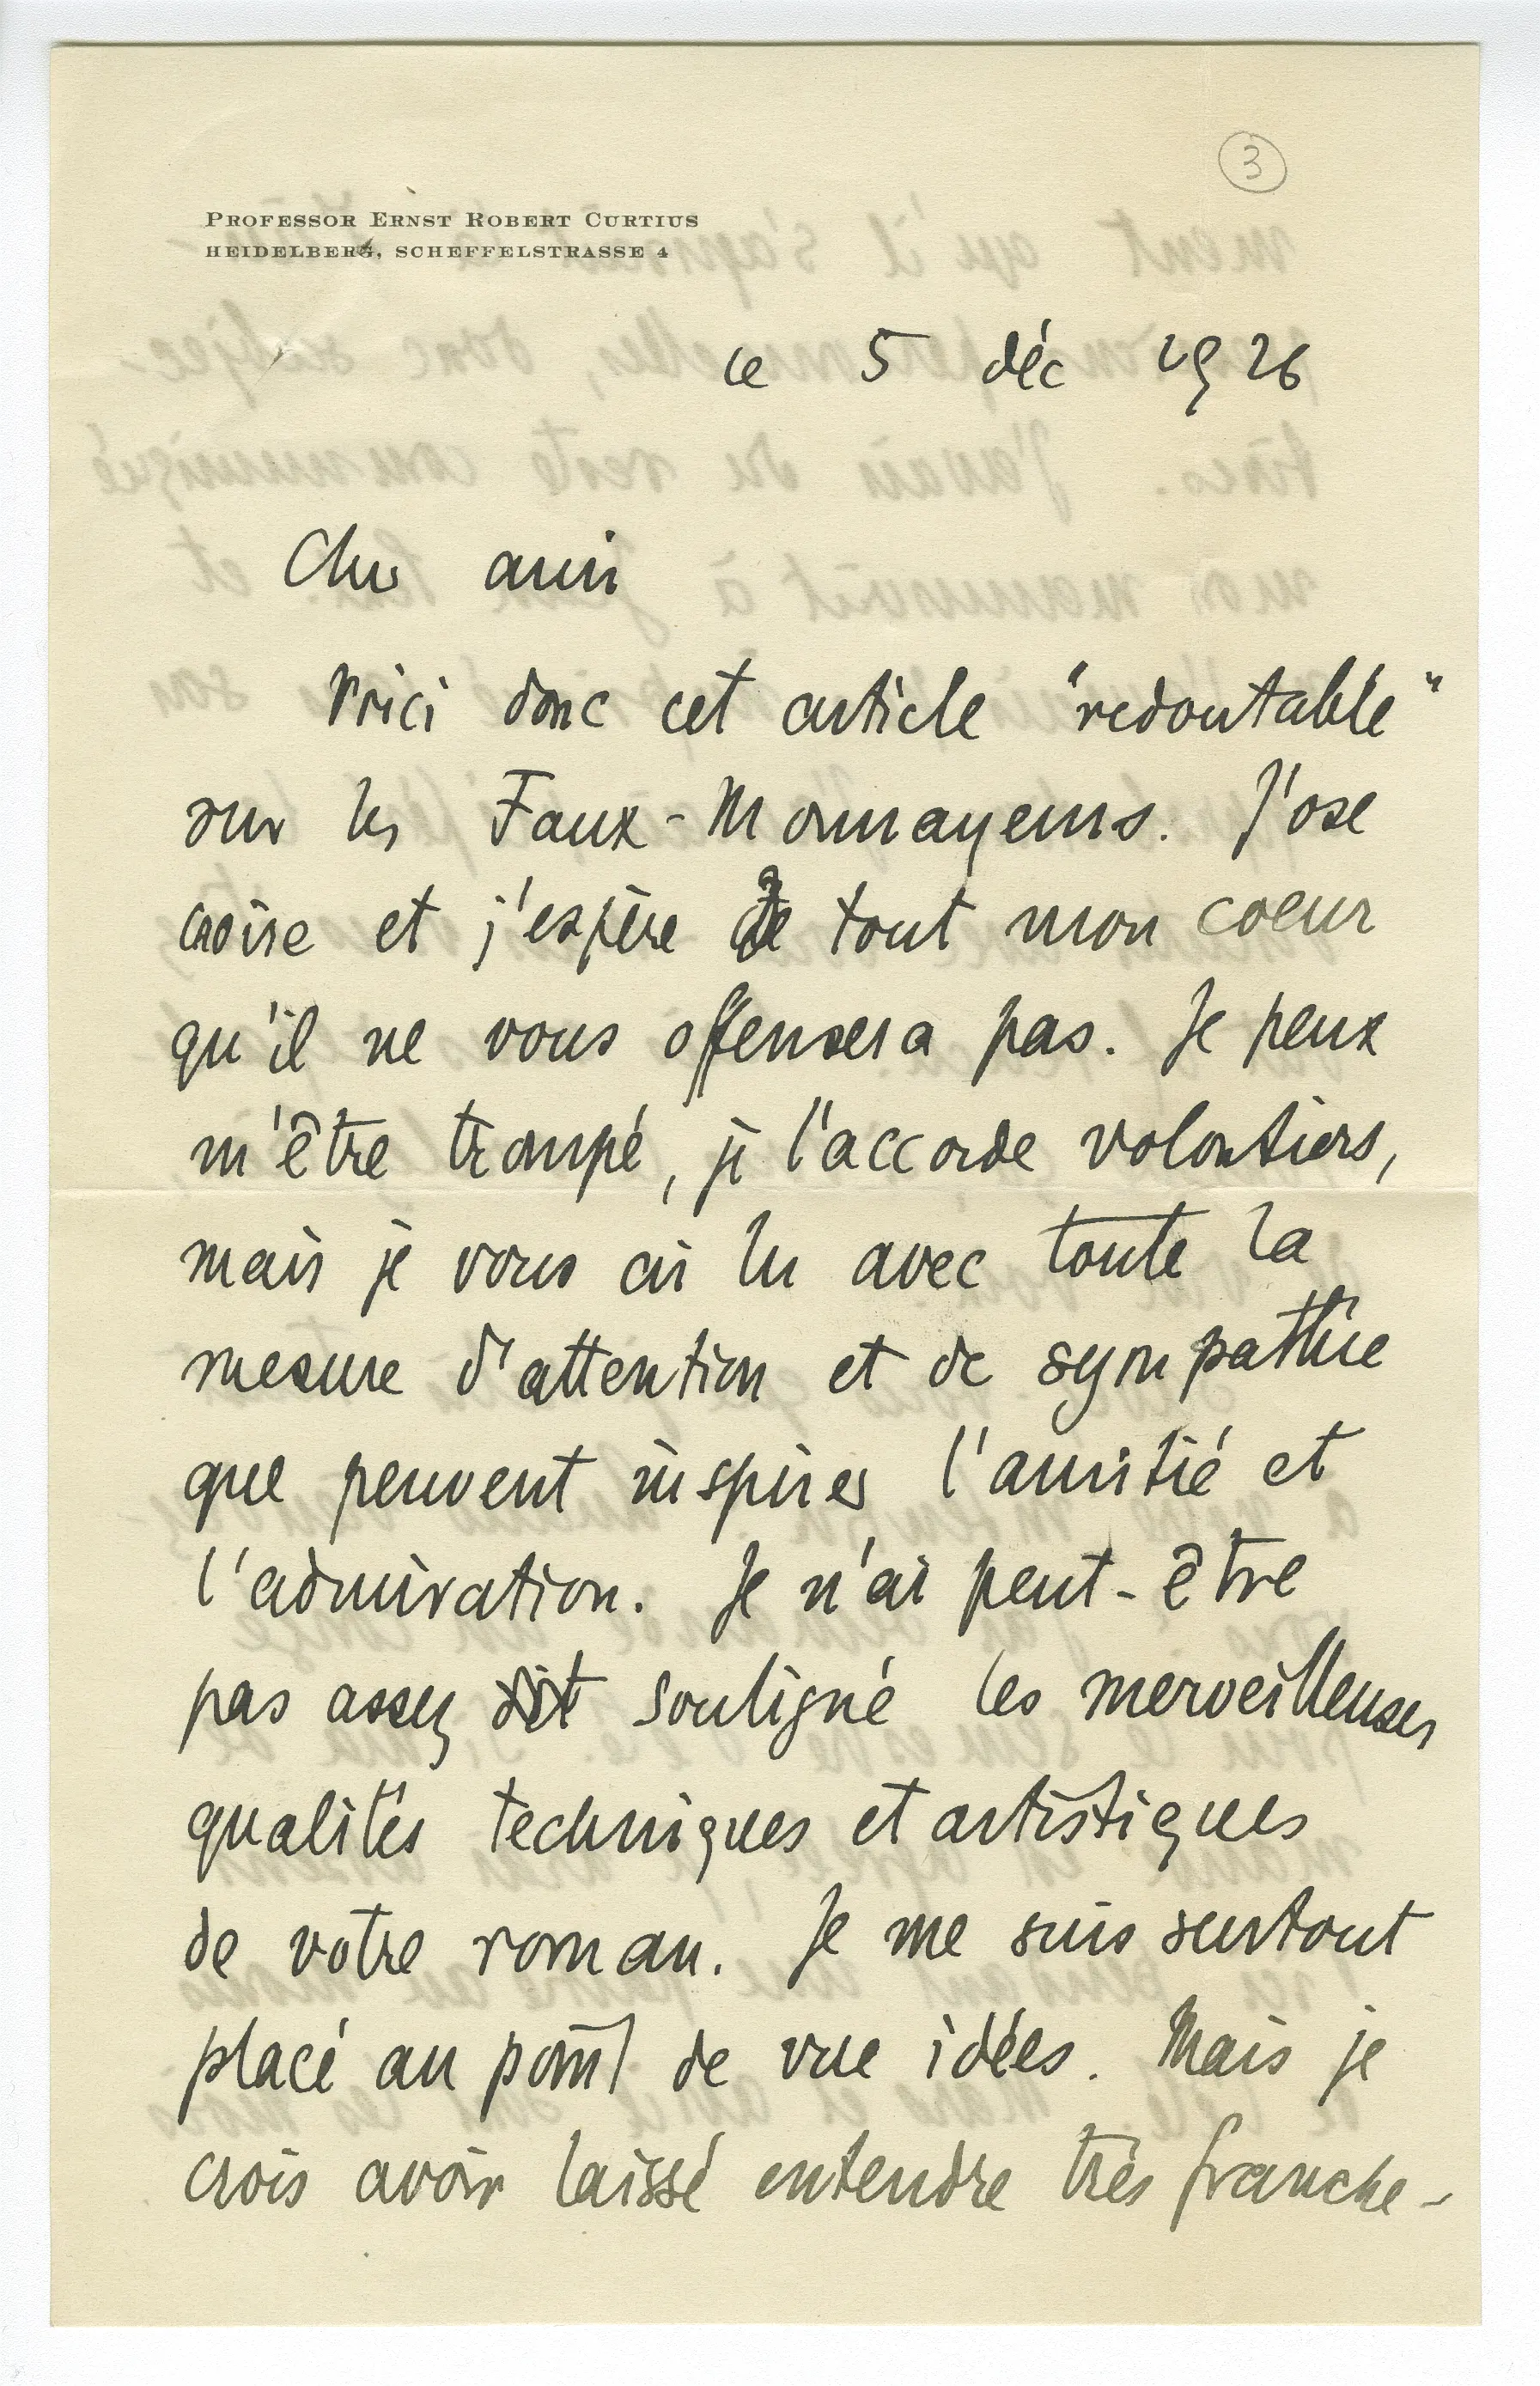 3
PROFESSOR ERNST ROBERT CURTIUS
HEIDELBERG, SCHEFFELSTRASSE 4
le 5 déc 1926
Cher ami
Voici donc cet article "redoutable"
sur les Faux-Monnayeurs. J'ose
croire et j'espère de tout mon coeur
qu'il ne vous offensera pas. Je peux
m'être trompé, je l'accorde volontiers,
mais je vous ai lu avec toute la
mesure d'attention et de sympathie
que peuvent inspirer l'amitié et
l'admiration. Je n'ai peut-être
pas assez dit souligné les merveilleuses
qualités techniques et artistiques
de votre roman. Je me suis surtout
placé au point de vue idées. Mais je
crois avoir laissé entendre très franche-